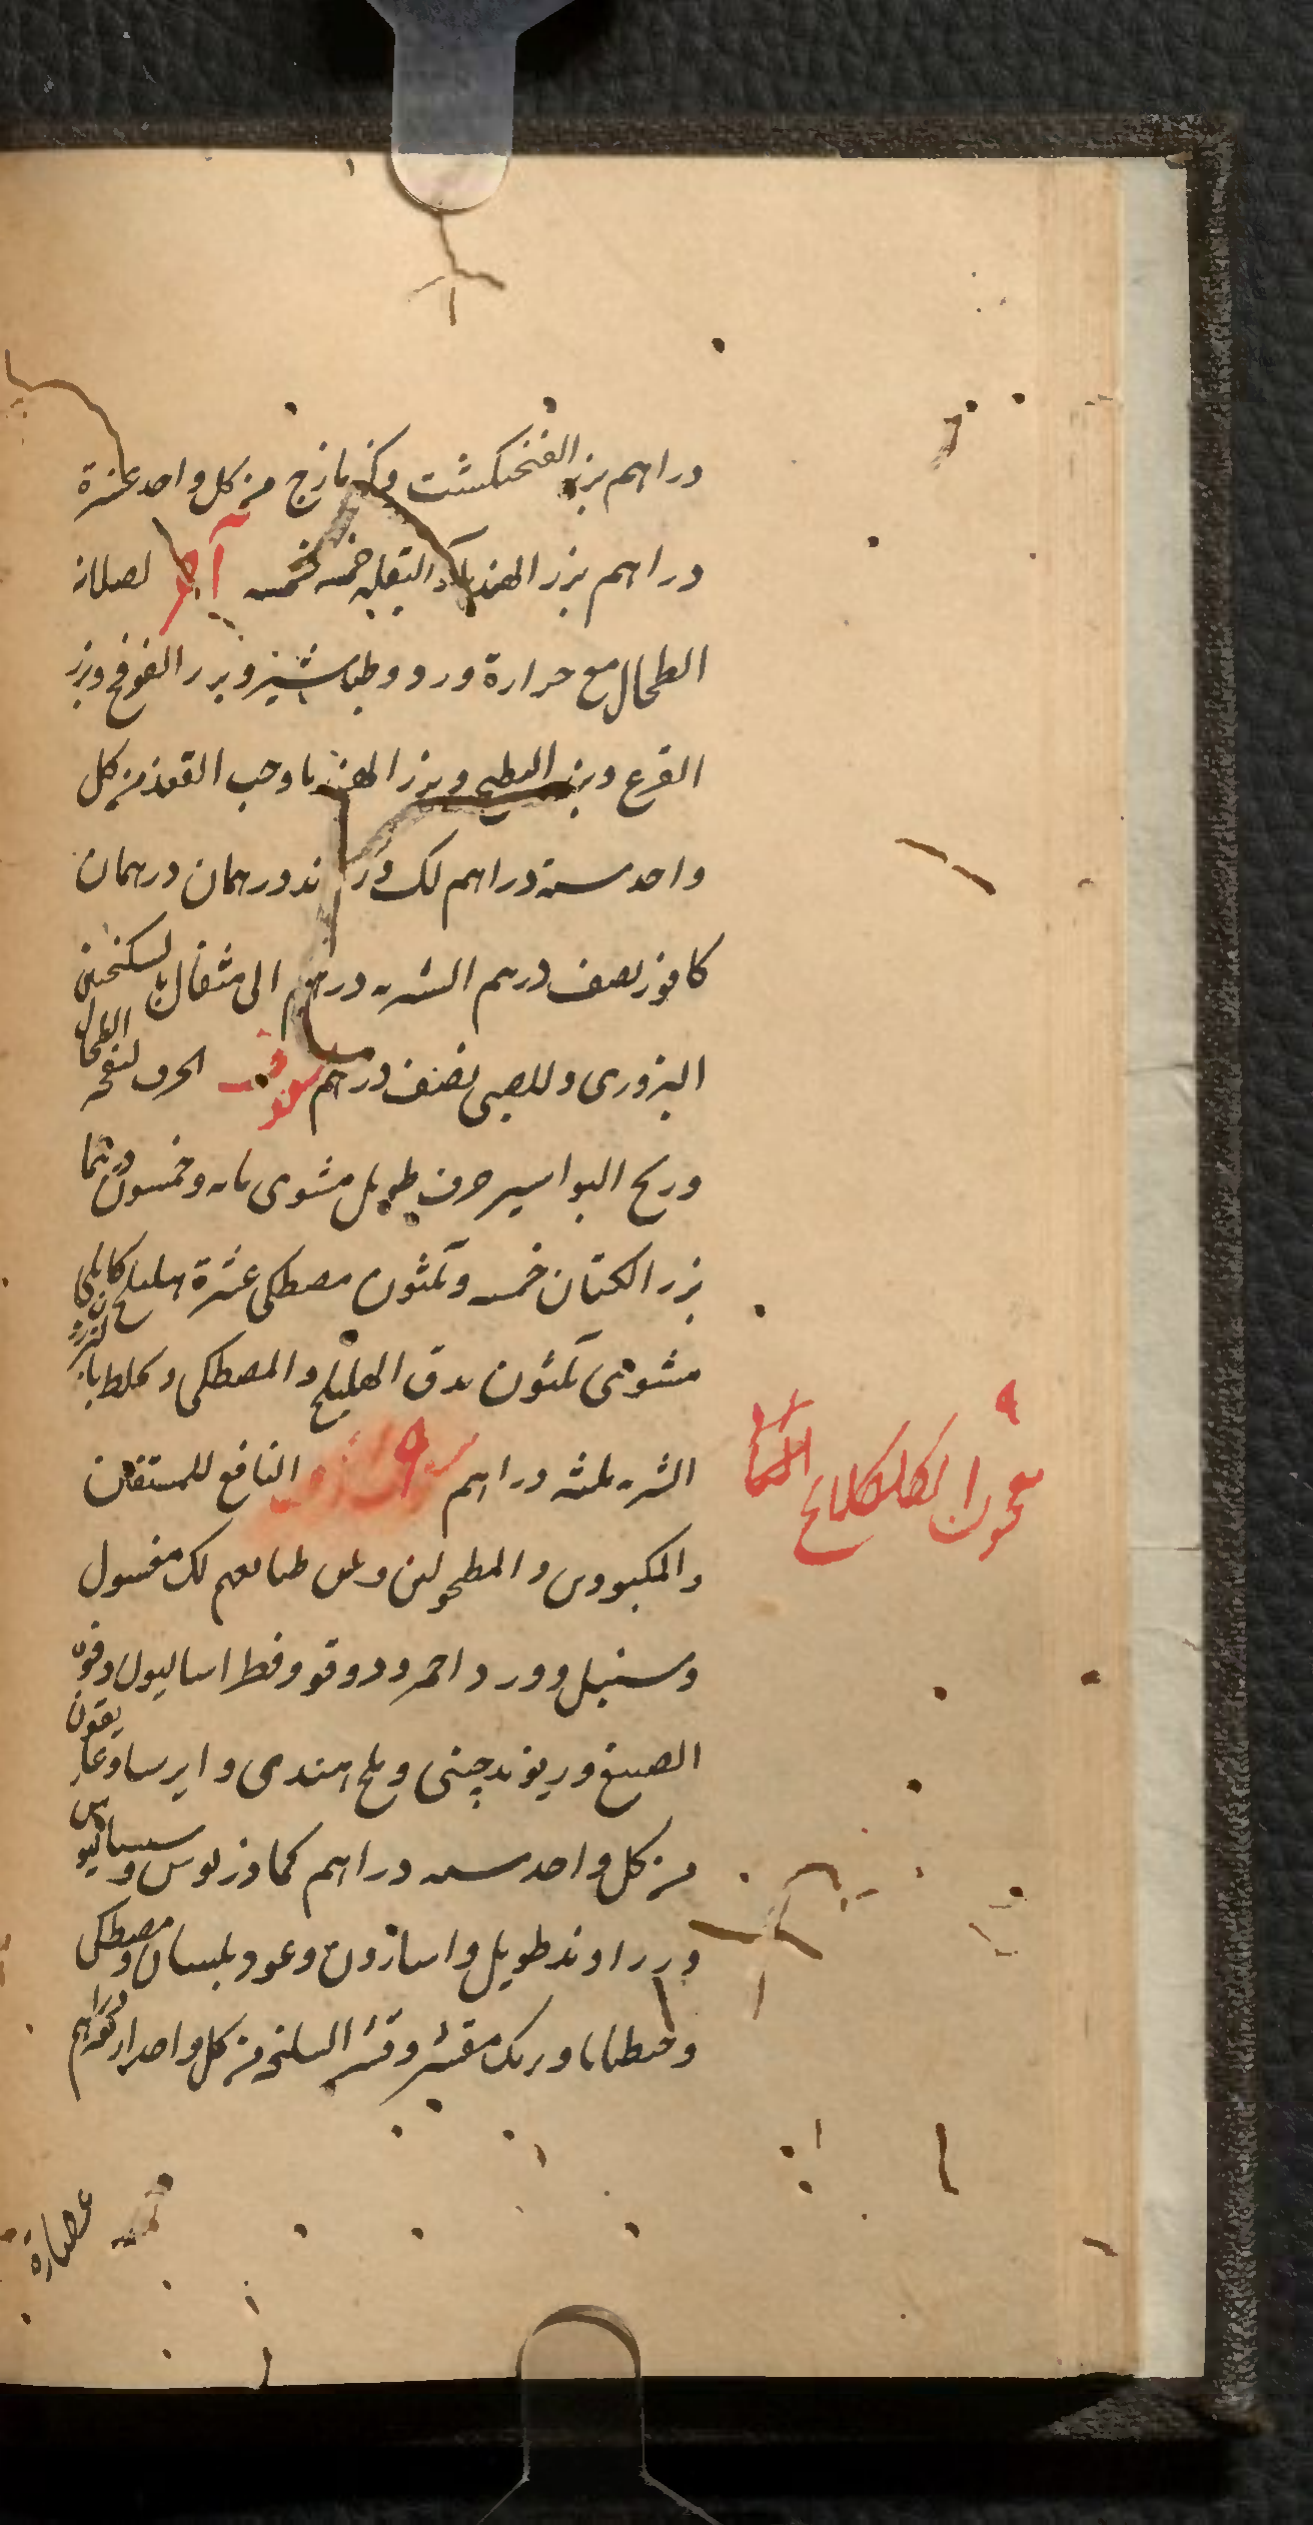 دراهم بزر الفنجنكشت وكزمازج من كل واحد عشرة
دراهم بزر الهندبا والبقلة خمسة خمسة آخر لصلابة
الطحال مع حرارة ورد وطباشير وبزر الفرفخ وبزر
القرع وبزر البطيخ وبزر الهندبا وحب القعد من كل
واحد ستة دراهم لك وراوند درهمان درهمان
كافور نصف درهم الشربة درهم الى مثقال بالسكنجبين
البزورى وللصبى نصف درهم سفوف الحرف لنفخ الطحال
وريح البواسير حرف طويل مشوى مايه وخمسون درهما
بزر الكتان خمسة وثلثون مصطكى عشرة هليلج كابلى
مشوى ثلثون يدق الهليلج والمصطكى ويخلط بالبزرين
الشربة ثلثة دراهم النافع للمستقين
والمكبودين والمطحولين ويلين طبايعهم لك مغسول
وسنبل وورد احمر ودوقو وفطراساليون وفوة
الصبغ وريوند چينى وملح هندى وايرسا وغاريقون
من كل واحد ستة دراهم كمادريوس وسيساليوس
وزراوند طويل واسارون وعود بلسان ومصطكى
وجنطيانا وبرنك مقشر وقشر السليخة من كل واحد اربعة دراهم
معجون الكلكلانج
عصارة